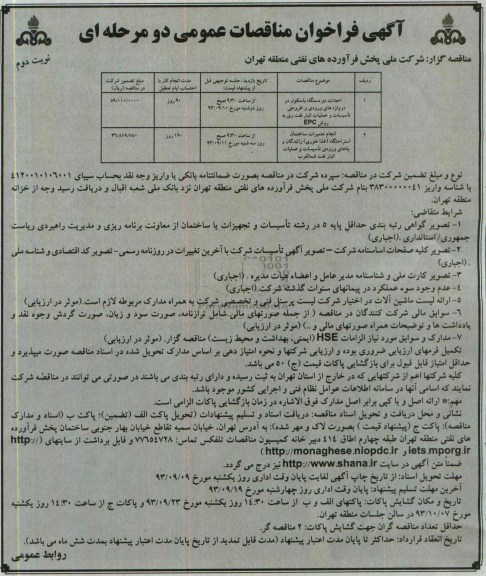 آگهی فراخوان مناقصات عمومی دو مرحله ای
مناقصه گزار: شرکت ملی پخش فرآورده های نفتی منطقه تهران
نوبت دوم
ردیف
موضوع مناقصات
تاریخ بازدید/ جلسه توجیهی قبل از پیشنهاد قیمت:
مدت انجام کار با احتساب ایام تعطیل
مبلغ تضمین شرکت در مناقصه (ریال)
۱
احداث دو دستگاه باسکول در دروازه های ورودی و خروجی تأسیسات و عملیات انبار نفت ری به روش EPC
از ساعت ۹:۳۰ صبح روز دوشنبه مورخ ۹۳/۰۹/۱۰
۹۰ روز
۲
انجام تعمیرات ساختمان استراحتگاه (غذا خوری) رانندگان و بناهای ورودی تأسیسات و عملیات انبار نفت شمالغرب
از ساعت ۹:۳۰ صبح روز سه شنبه مورخ ۹۳/۰۹/۱۱
۱۲۰ روز
نوع و مبلغ تضمین شرکت در مناقصه: سپرده شرکت در مناقصه بصورت ضمانتنامه بانکی یا واریز وجه نقد بحساب سیبای ۴۱۲۰۰۱۰۱۰۶۰۰۱
با شناسه واریز ۳۸۳۰۰۰۰۰۰۴۱ بنام شرکت ملی پخش فرآورده های نفتی منطقه تهران نزد بانک ملی شعبه اقبال و دریافت رسید وجه از خزانه
منطقه تهران.
شرایط متقاضی:
۱- تصویر گواهی رتبه بندی حداقل پایه ۵ در رشته تأسیسات و تجهیزات یا ساختمان از معاونت برنامه ریزی و مدیریت راهبردی ریاست
جمهوری/استانداری .(اجباری)
۲- تصویر کلیه صفحات اساسنامه شرکت – تصویر آگهی تأسیسات شرکت با آخرین تغییرات در روزنامه رسمی- تصویر کد اقتصادی و شناسه ملی
.(اجباری)
۳- تصویر کارت ملی و شناسنامه مدیر عامل و اعضاء هیأت مدیره . (اجباری)
۴- عدم وجود سوء عملکرد در پیمانهای سنوات گذشته شرکت.(اجباری)
۵- ارائه لیست ماشین آلات در اختیار شرکت لیست پرسنل فنی و تخصصی شرکت به همراه مدارک مربوطه لازم است.(موثر در ارزیابی)
۶- سوابق مالی شرکت کنندگان در مناقصه ( از جمله صورتهای مالی شامل ترازنامه، صورت سود و زیان، صورت گردش وجوه نقد و
یادداشت ها و توضیحات همراه صورتهای مالی و ..) (موثر در ارزیابی)
۷- مدارک و سوابق مورد نیاز الزامات HSE (ایمنی، بهداشت و محیط زیست) مناقصه گزار. (موثر در ارزیابی)
تکمیل فرمهای ارزیابی ضروری بوده و ارزیابی شرکتها و نحوه امتیاز دهی بر اساس مدارک تحویل شده در اسناد مناقصه صورت میپذیرد و
حداقل امتیاز قابل قبول برای بازگشایی پاکات قیمت (ج) ۵۰ می باشد.
کلیه شرکتها اعم از شرکتهایی که در خارج از استان تهران به ثبت رسیده و دارای رتبه بندی می باشند در صورتی می توانند در مناقصه شرکت
نمایند که اسامی آنها در سامانه اطلاعات عوامل نظام فنی و اجرایی کشور موجود باشد.
مهم:* ارائه اصل و یا کپی برابر اصل مدارک فوق الاشاره در زمان بازگشایی پاکات الزامی است.
نشانی و محل دریافت و تحویل اسناد مناقصه: دریافت اسناد و تسلیم پیشنهادات (تحویل پاکت الف (تضمین): پاکت ب (اسناد و مدارک
مناقصه): پاکت ج (پیشنهاد قیمت ) بصورت لاک و مهر شده): به آدرس تهران، خیابان سمیه تقاطع خیابان بهار جنوبی ساختمان پخش فرآورده
های نفتی منطقه تهران طبقه چهارم اطاق ۴۱۴ دبیر خانه کمیسیون مناقصات تلفکس تماس: ۷۷۶۵۴۷۲۸ و قابل برداشت از سایتهای (http://
iets.mporg.ir و http://monaghese.niopdc.ir )
ضمنا متن آگهی در سایت http://www.shana.ir نیز درج می گردد.
مهلت تحویل اسناد: از تاریخ چاپ آگهی لغایت پایان وقت اداری روز یکشنبه مورخ ۹۳/۰۹/۰۹
آخرین مهلت تسلیم پیشنهاد: پایان وقت اداری روز چهارشنبه مورخ ۹۳/۰۹/۱۹
تاریخ و مکان گشایش پاکات: پاکتهای الف و ب از ساعت ۱۴:۳۰ روز یکشنبه مورخ ۹۳/۰۹/۲۳ و پاکات ج از ساعت ۱۴:۳۰ روز یکشنبه
مورخ ۹۳/۱۰/۰۷ در سالن جلسات منطقه تهران.
حداقل تعداد مناقصه گران جهت گشایش پاکات: ۲ مناقصه گر.
تاریخ انعقاد قرارداد: حداکثر تا پایان مدت اعتبار پیشنهاد (مدت قابل تمدید از تاریخ پایان مدت اعتبار پیشنهاد بمدت شش ماه می باشد).
روابط عمومی